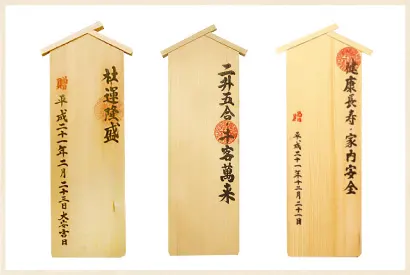 社運隆盛
贈 平成二十一年二月二十三日大安吉日
二升五合・千客萬来
健康長寿・家内安全
贈 平成二十一年十二月二十一日